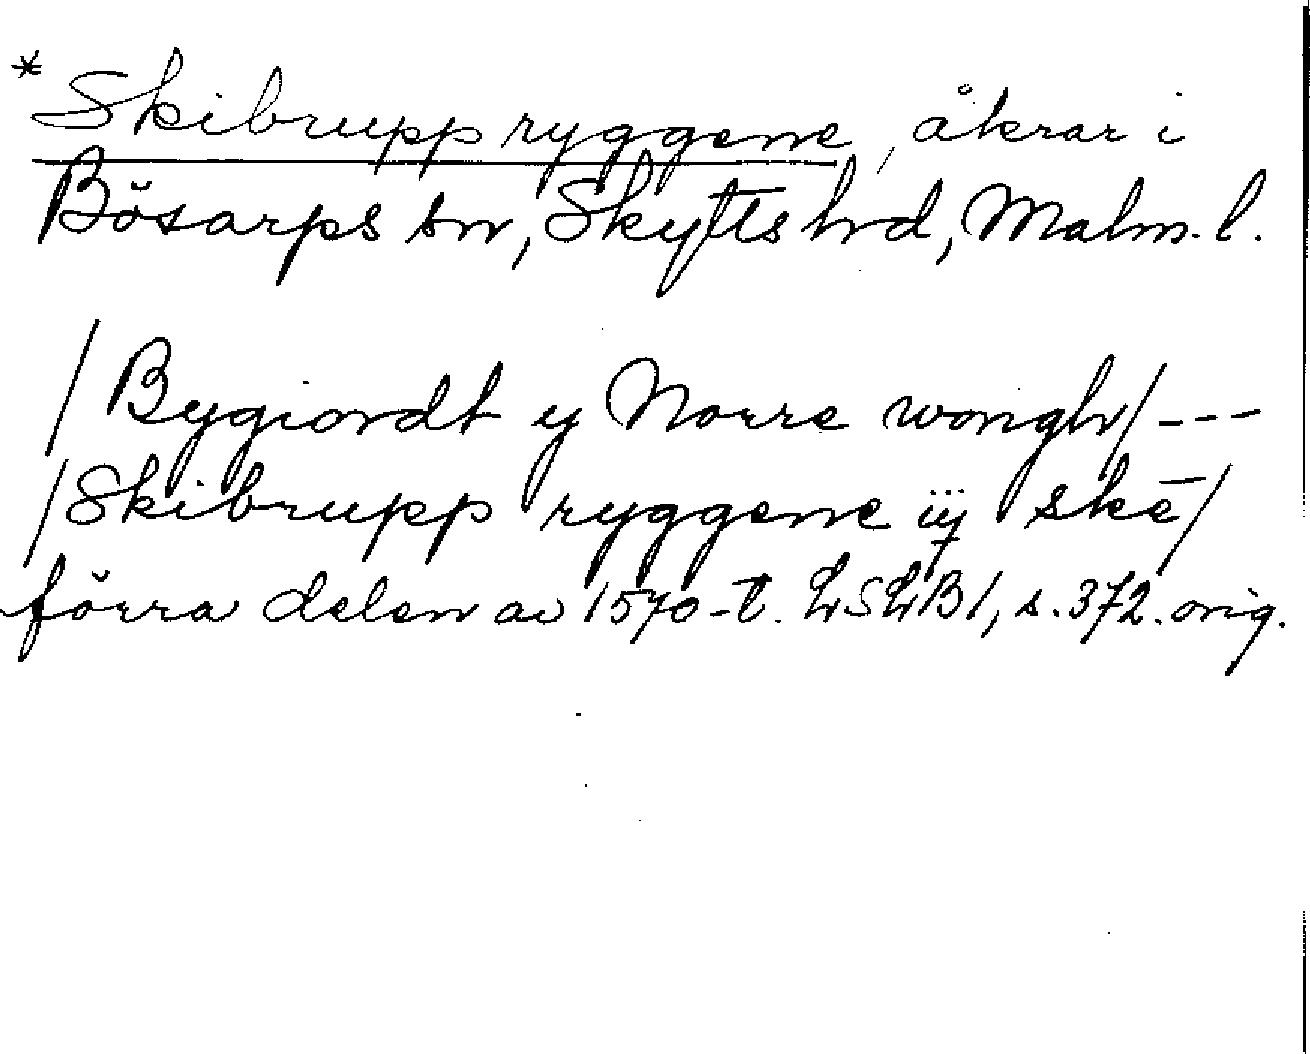 *Skibrupp ryggene, åkrar i
Bösarps sn, Skytts hd, Malm. l.
/Bygiordt y Norre wongh/ ---
/Skibrupp ryggene iij skē/
förra delen av 1570-t. LSLB1, s. 372. orig.